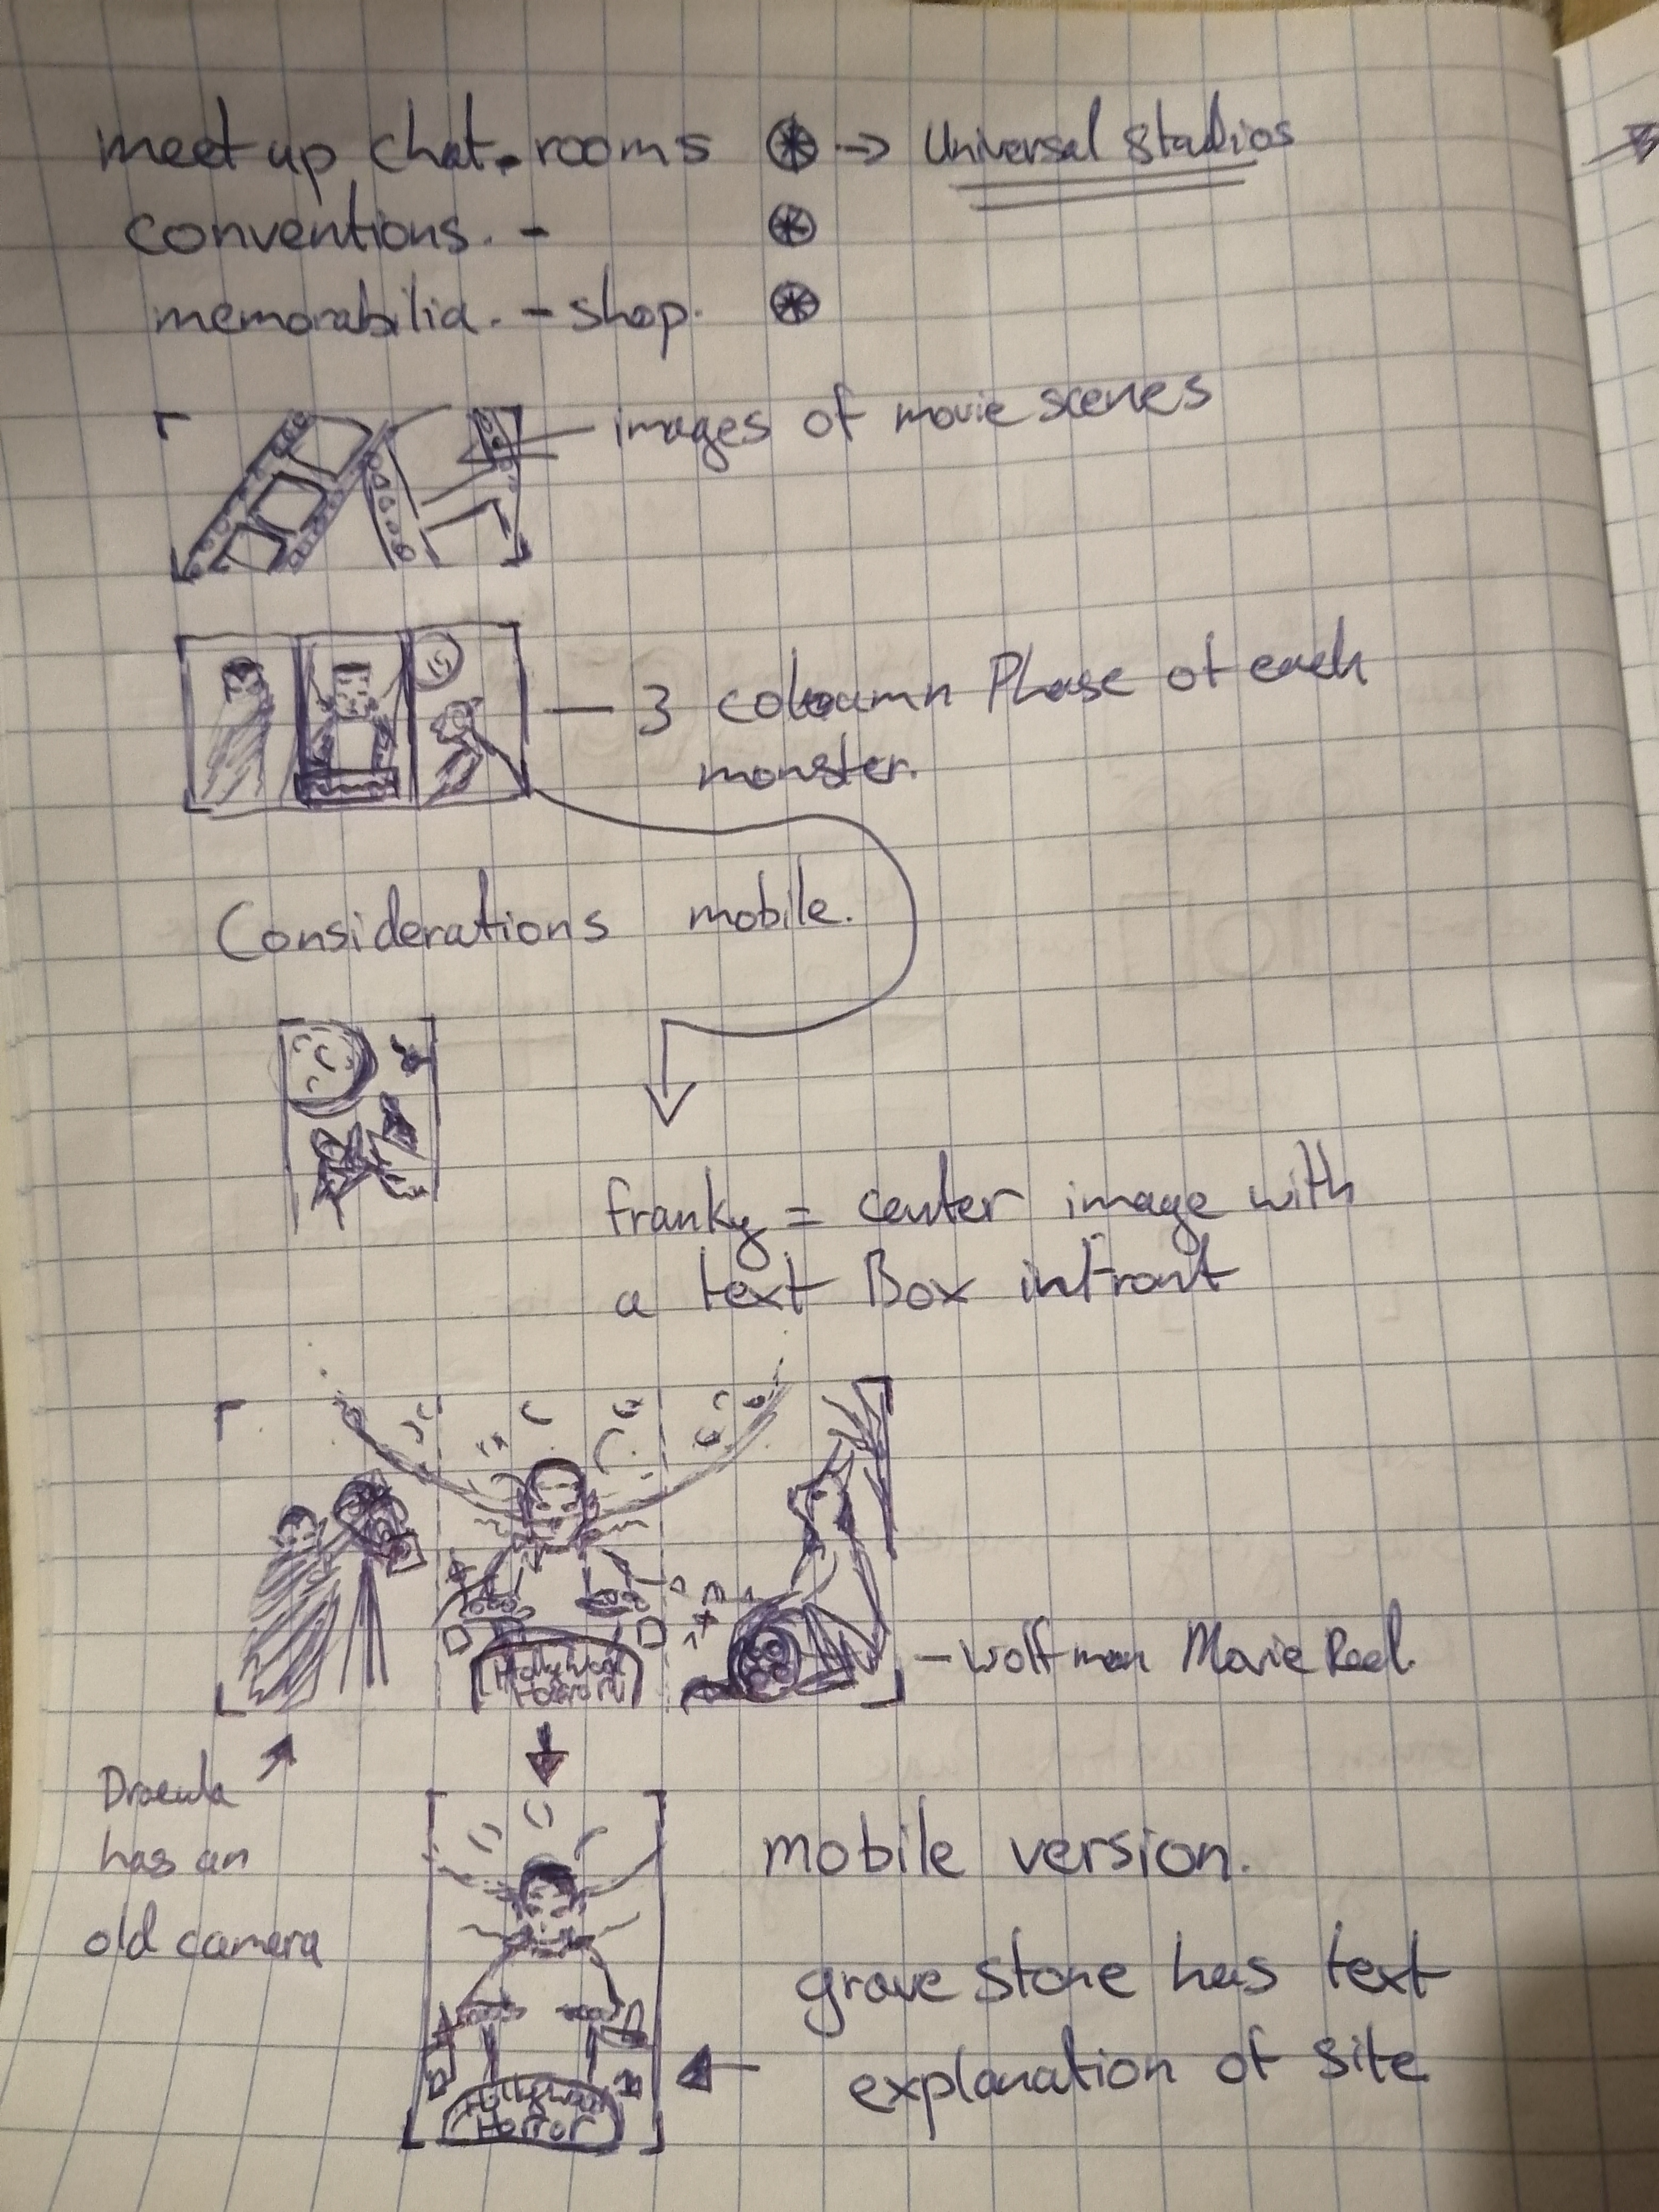 meet up chat. rooms ⊛ -> Universal Studios
conventions. - ⊛
memorabilia. - shop. ⊛
images of movie scenes
- 3 coloumn Phase of each
monster.
Considerations mobile.
franky = center image with
a text Box infront
Hollywood
Horror
- wolfman Movie Reel.
Dracula
has an
old camera
mobile version.
grave stone has text
explanation of site
Hollywood
Horror